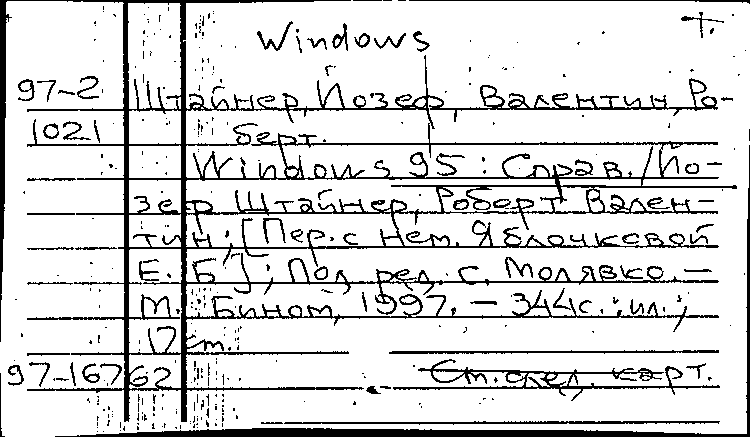 Windows Т.
97-2 Штайнер, Йозеф, Валентин, Ро-
1021 берт.
Windows 95 : Справ. / Йо-
зеф Штайнер, Роберт Вален-
тин; [Пер. с нем. Яблочковой
Е. Б.]; Под ред. С. Молявко. —
М. Бином, 1997. — 344 с.: ил.;
17 см.
97-16762 См. след. карт.